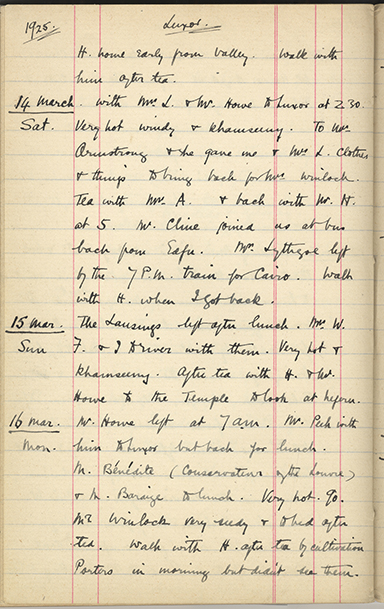 1925. Luxor.
H. home early from Valley. Walk with
him after tea.
14 March. with Mrs L. & Mr. Howe to Luxor at 2.30.
Sat. Very hot windy & khamseeny. To Mrs
Armstrong & she gave me & Mrs L. clothes
& things to bring back for Mrs Winlock.
Tea with Mrs. A. & back with Mr. H.
at 5. Mr. Cline joined us at bus
back from Edfu. Mr. Lythgoe left
by the 7 P.M. train for Cairo. Walk
with H. when I got back.
15 Mar. The Lansings left after lunch. Mrs W.
Sun F. & I Driver with them. Very hot &
khamseeny. After tea with H. & Mr.
Howe to the Temple to look at
16 Mar. Mr. Howe left at 7 am. Mr. Peck with
Mon. him to Luxor but back for lunch.
M. Bénédite (Conservateur of the Louvre)
& M. Baraize to lunch. Very hot. 90.
Mr Winlock very seedy & to bed after
tea. Walk with H. after tea by cultivation
Porters in morning but didn't see them.